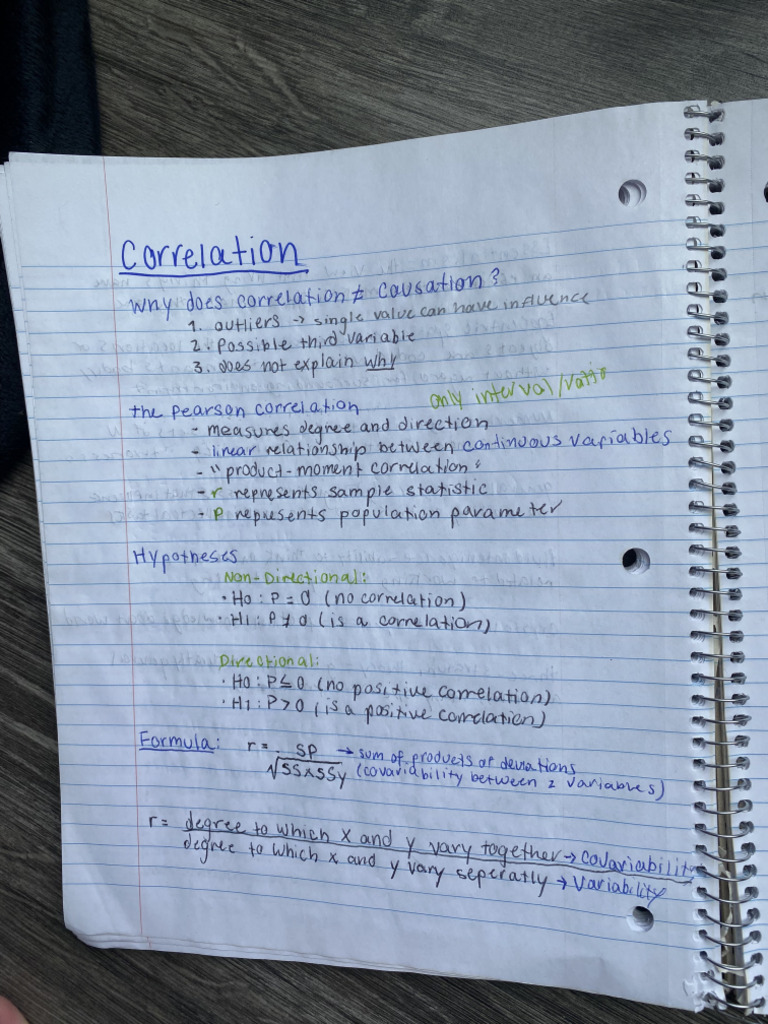 Correlation
Why does correlation ≠ causation?
1. outliers → single value can have influence
2. Possible third variable
3. does not explain why
only interval/ratio
the Pearson correlation
- measures degree and direction
- linear relationship between continuous variables
- "product-moment correlation"
- r represents sample statistic
- P represents population parameter
Hypotheses
Non-Directional:
• H0: P = 0 (no correlation)
• H1: P ≠ 0 (is a correlation)
Directional:
• H0: P ≤ 0 (no positive correlation)
• H1: P > 0 (is a positive correlation)
Formula: r = SP → sum of products of deviations
√SSxSSy (covariability between 2 variables)
r = degree to which x and y vary together → covariability
degree to which x and y vary seperatly → variability